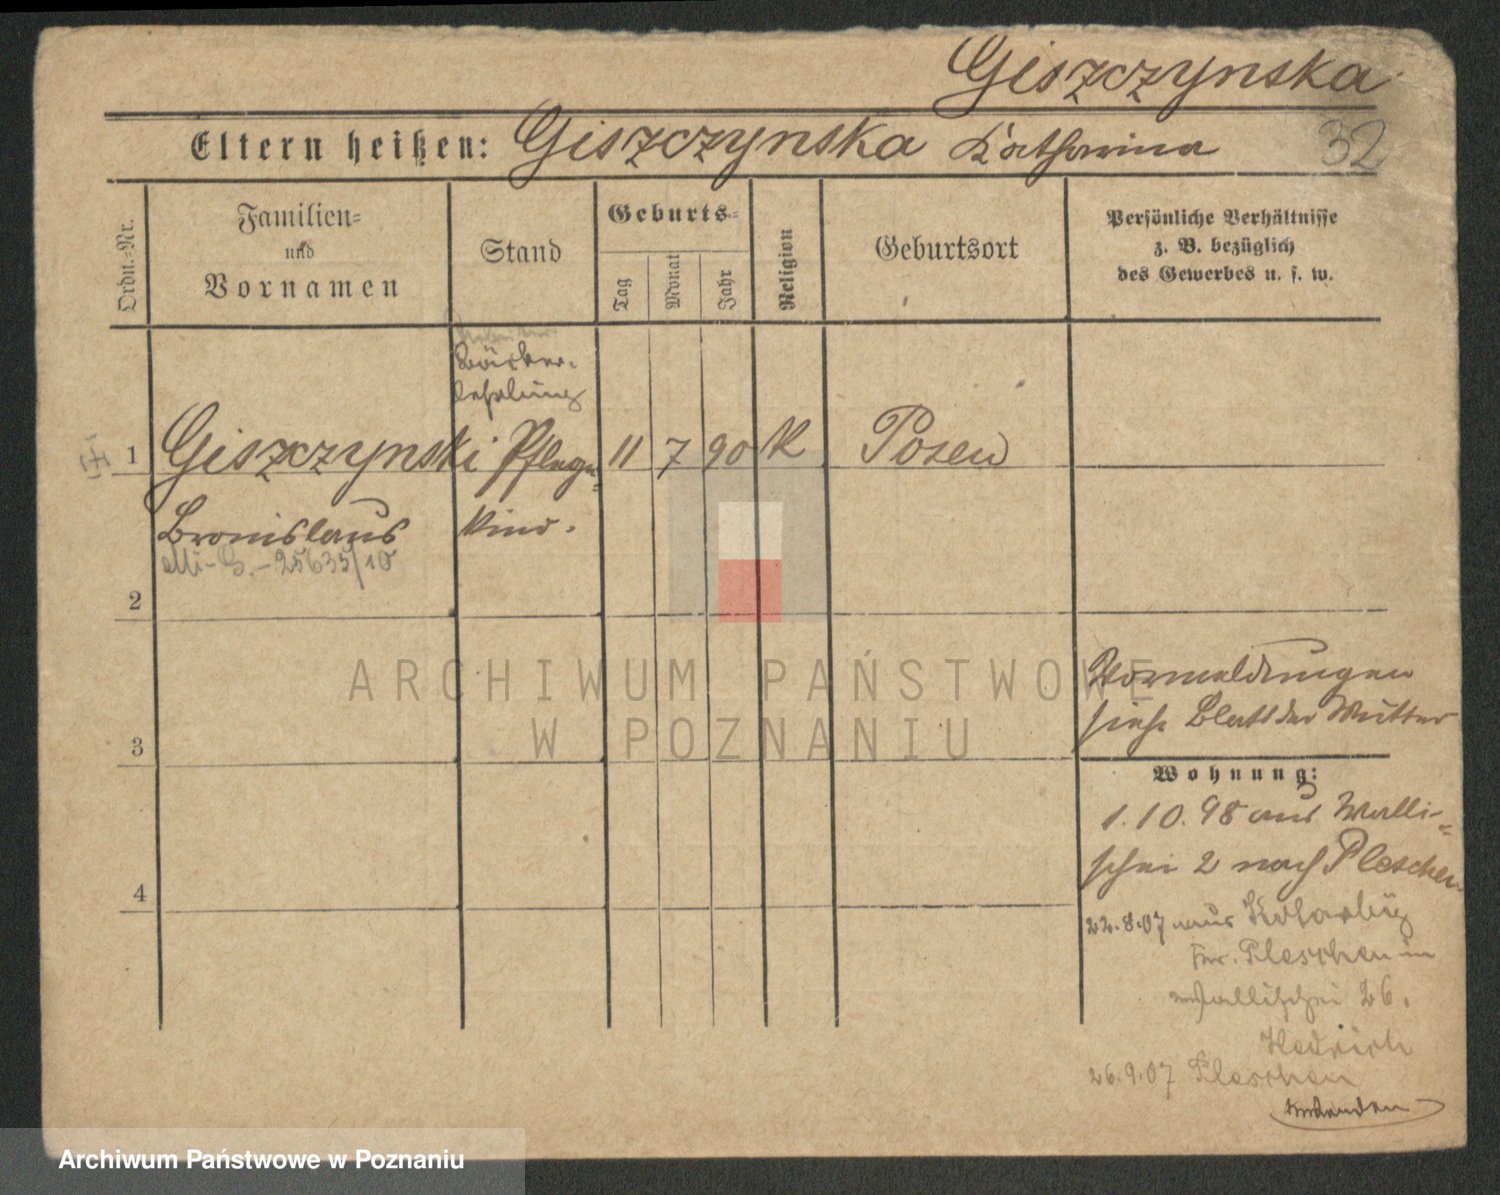 Giszczynska
Eltern heißen: Giszczynska Katharina
32
Ordn.-Nr.
Familien-
und
Vornamen
Stand
Geburts-
Tag
Monat
Jahr
Religion
Geburtsort
Persönliche Verhältnisse
z. B. bezüglich
des Gewerbes u. s. w.
Bäcker-
lehrling
1 Giszczynski Pflege- 11 7 90 K Posen
Bronislaus kind.
25635/10
2
Vormeldungen
siehe Blatt der Mutter
3
Wohnung:
1.10.98 aus Walli-
schei 2 nach Pleschen
4
22.8.07 aus
Pleschen in
Wallischei 26.
26.9.07 Pleschen
ARCHIWUM PAŃSTWOWE
W POZNANIU
Archiwum Państwowe w Poznaniu